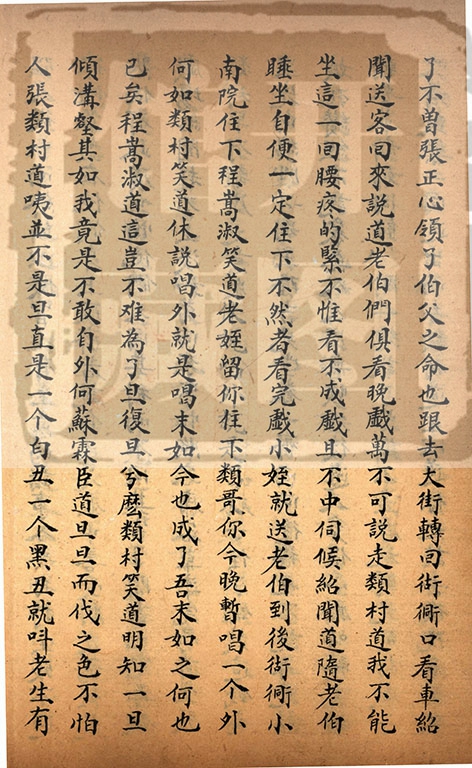 了不曾張正心領了伯父之命也跟去大街轉回衕衕口看車紹
聞送客回來說道老伯們俱看晚戲萬不可說走類村道我不能
坐這一回腰疼的緊不惟看不成戲且不中伺候紹聞道隨老伯
睡坐自便一定住下不然者看完戲小姪就送老伯到後衕衕小
南院住下程嵩淑笑道老姪留你住下類哥你今晚暫唱一个外
何如類村笑道休說唱外就是唱末如今也成了吾末如之何也
已矣程嵩淑道這豈不难為了旦復旦兮麽類村笑道明知一旦
傾溝壑其如我竟是不敢自外何蘇霖臣道旦旦而伐之色不怕
人張類村道咦並不是旦直是一个白丑一个黑丑就呌老生有